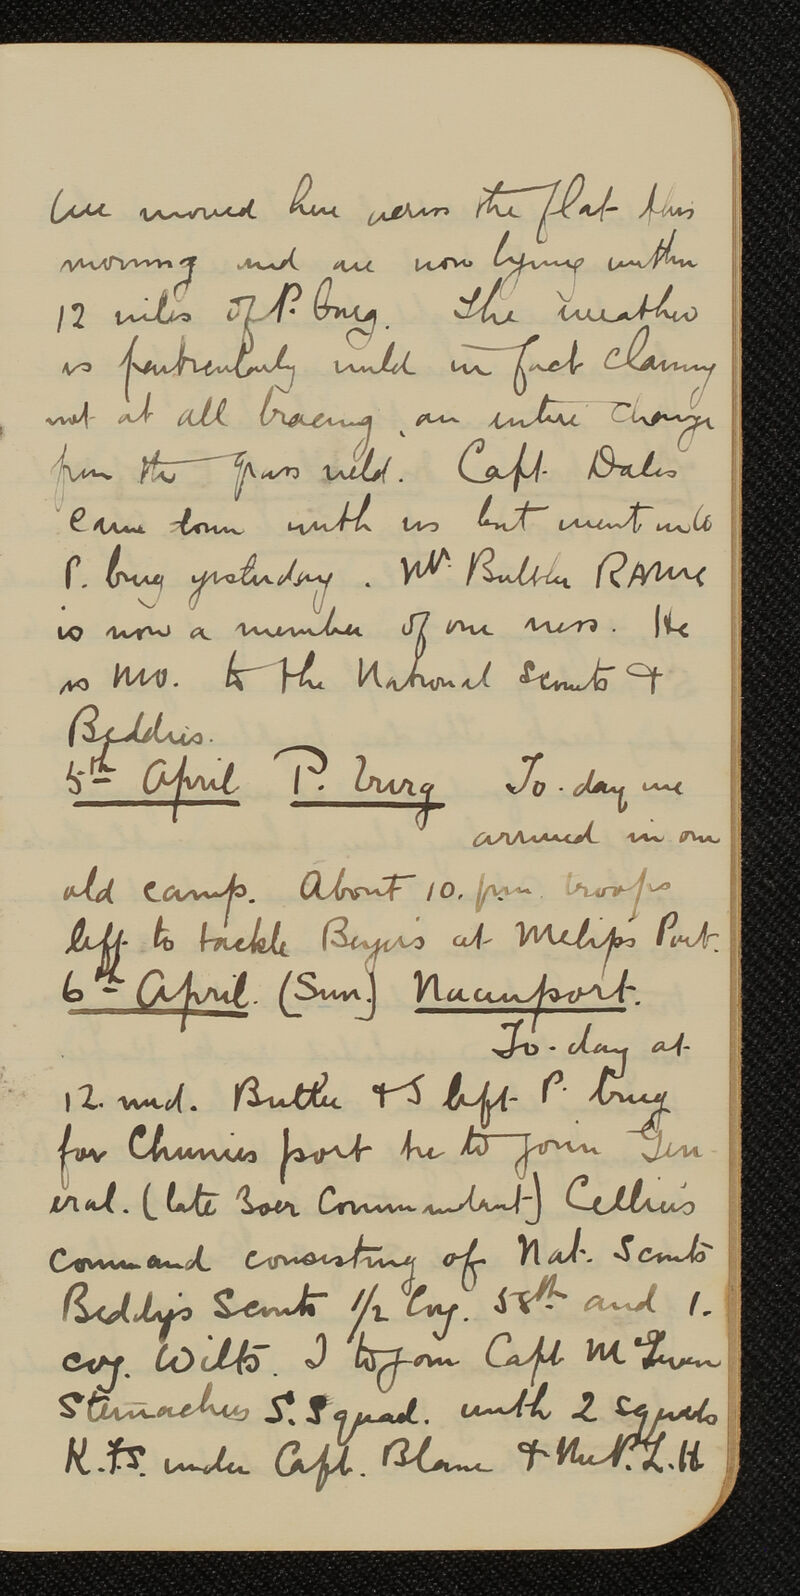 We moved here across the flat this
morning and are now lying within
12 miles of P. burg. The weather
is particularly mild in fact clammy
not at all bracing, an entire change
from the grass veld. Capt Dales
came down with us but went into
P. burg yesterday. Mr. Butler RAMC
is now a member of our mess. He
is MO. to the National Scouts &
Beddies.
5th April P. burg To-day we
arrived in our
old camp. About 10. p.m. troops
left to tackle Beyers at Melips Port.
6th April. (Sun) Naauwport.
To-day at
12. mid. Butler & I left P. burg
for Chunies port he to join Gen
eral. (late Boer Commandant) Cellier's
Command consisting of Nat. Scouts
Beddy's Scouts 1/2 Coy. 58th and 1.
coy. Wilts. I to join Capt
S. Squad. with 2 squads
K.F.S. under Capt. Blane & the P.L.H